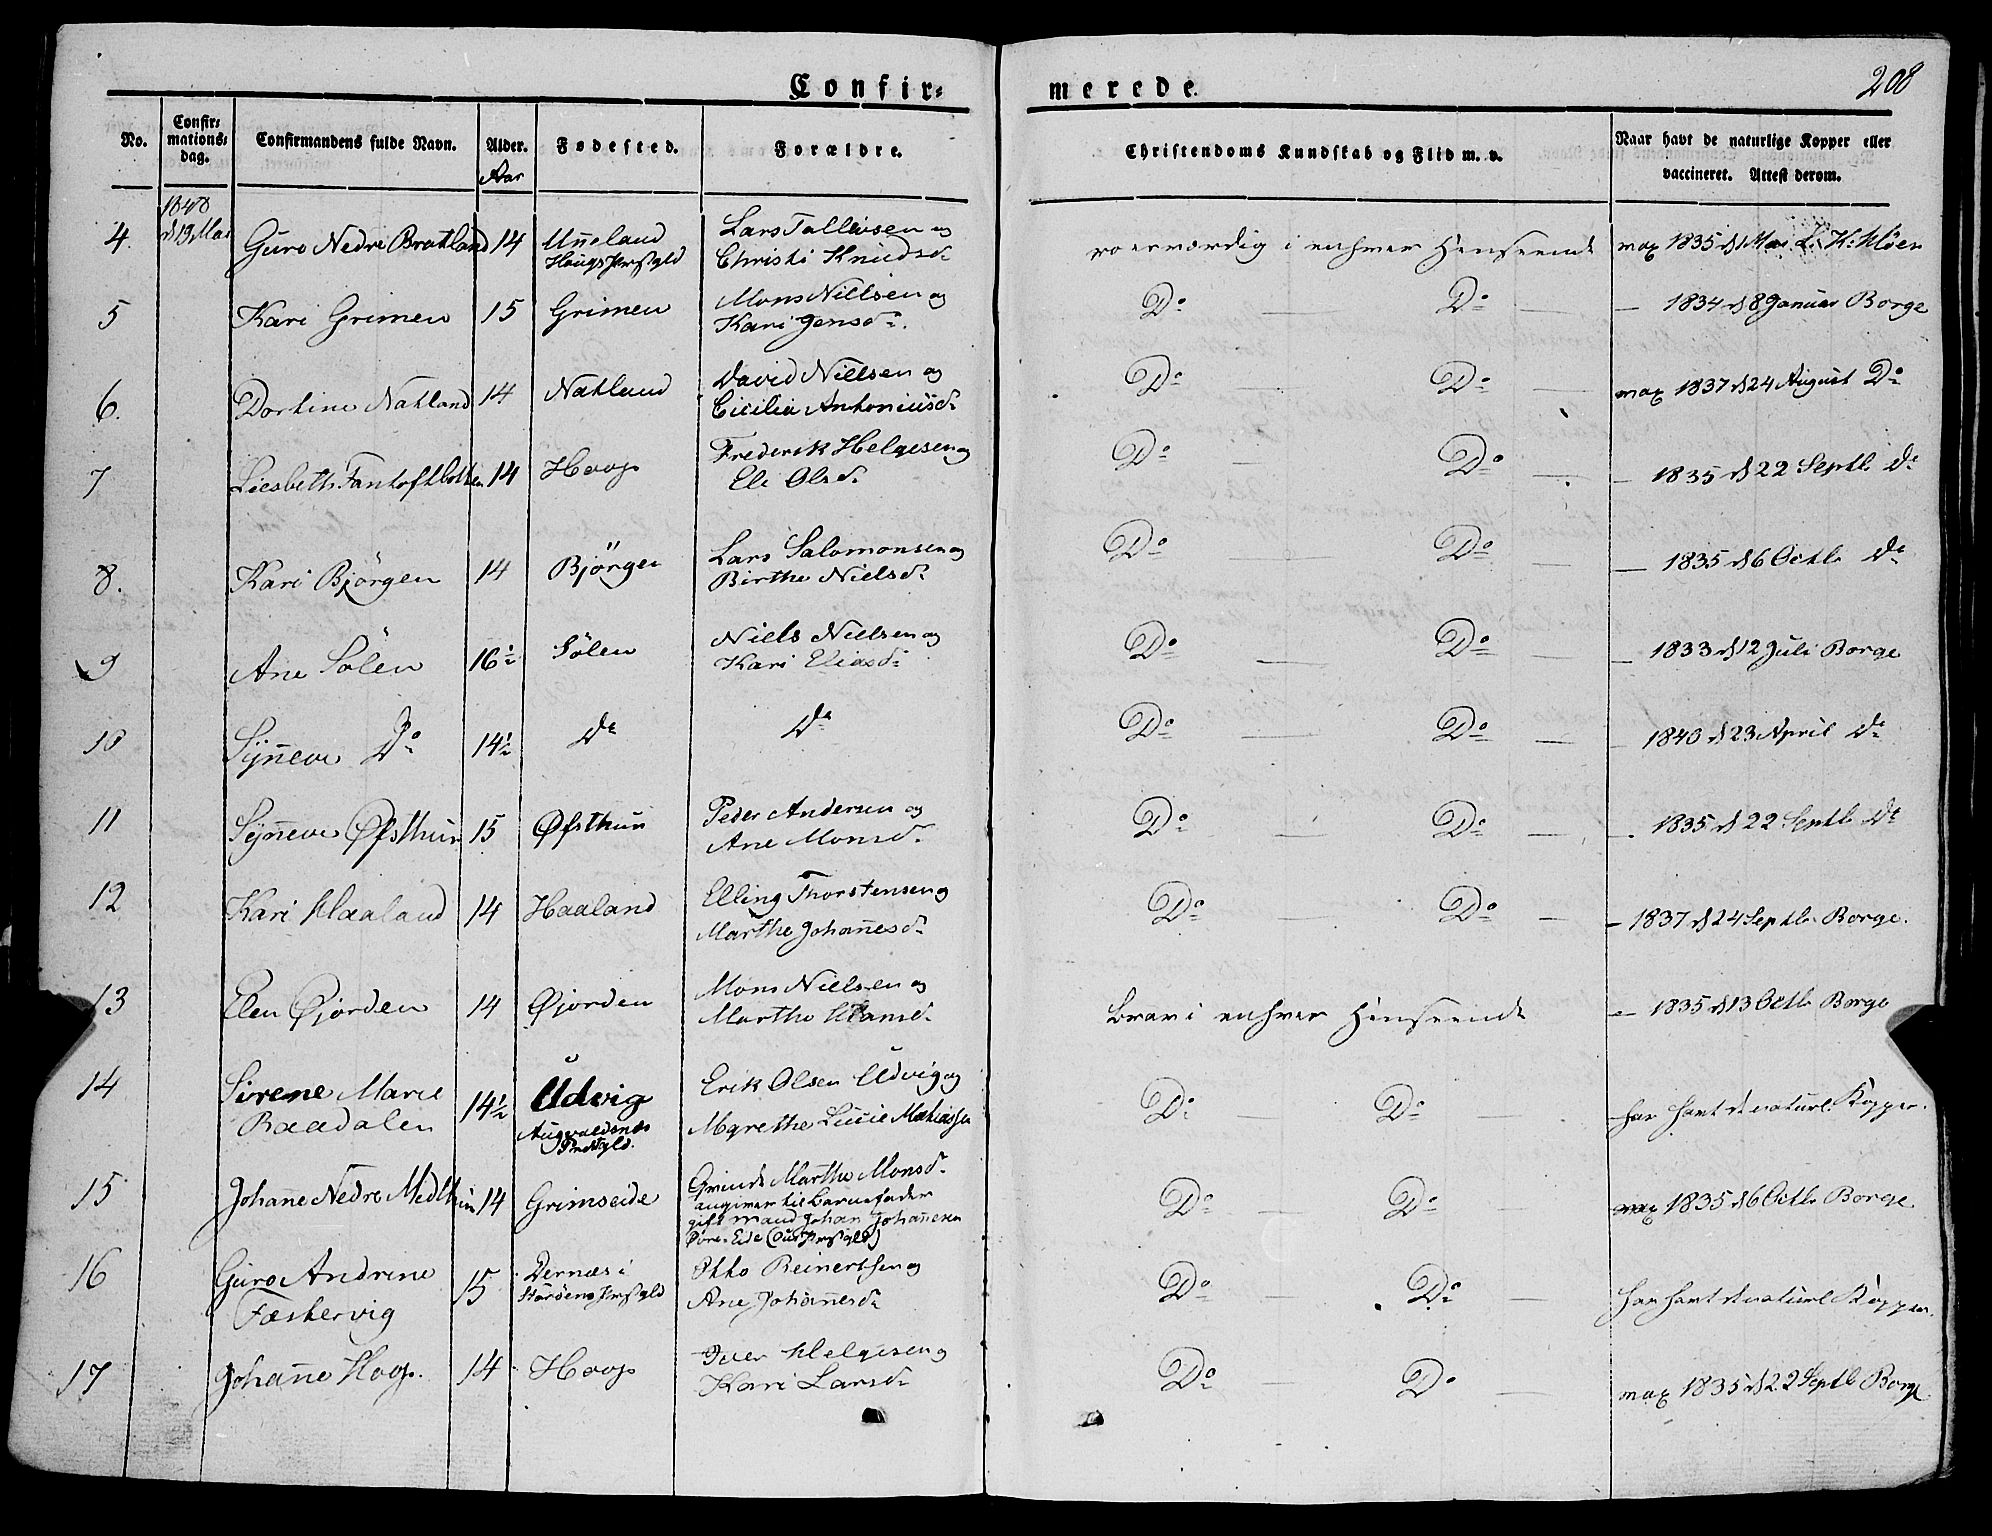 208
Confir= merede.
No. Confir=mations=dag. Confirmandens fulde Navn. Alder. Fødested. Forældre. Christendoms Kundskab og Flid m. v. Naar havt de naturlige Kopper eller vaccineret. Attest derom.
Aar
1848
d 19 Mai
4. Guro Nedre Bratland 14 Unneland Lars Tollevsen og
Haugs Prstgld Christi Knudsd. roesværdig i enhver Henseende vax 1835 d 1 Mai L. K: Kløen
5 Kari Grimen 15 Grimen Mons Nillsen og
Kari Jensd. Do — Do — — 1834 d 8 Januar Borge
6. Dortine Natland 14 Natland David Nillsen og
Cicilia Antoniusd. Do Do — vax 1837 d 24 August Do
7 Liesbeth Fantoft 14 Hoop Frederik Helgesen og
Eli Olsd. Do — Do — — 1835 d 22 Septb. Do
8. Kari Bjørgen 14 Bjørgen Lars Salomonsen og
Birthe Nielsd. Do — Do — — 1835 d 6 Octb. Do
9 Ane Sølen 16½ Sølen Niels Nielsen og
Kari Eliasd. Do — Do — — 1833 d 12 Juli Borge
10 Synneve Do 14½ Do Do Do — Do — — 1840 d 23 April Do
11 Synneve Øfsthun 15 Øfsthun Peder Andersen og
Ane Monsd. Do — Do — — 1835 d 22 Septb. Do
12 Kari Haaland 14 Haaland Elling Thorstensen og
Marthe Johannesd. Do — Do — — 1837 d 24 Septb. Borge.
13 Elen Øjorden 14 Øjorden Mons Nielsen og
Marthe Hansd. brav i enhver Henseende — 1835 d 13 Octb. Borge
14 Sirene Marie
Raadalen 14½ Udvig
Augvaldsnes
Prstgld. Erik Olsen Udvig og
Mgrethe Lucie Do — Do — har havt de naturl. Kopper.
15 Johanne Nedre Midthun 14 Grimseide Marthe Monsd.
angiver til Barnefader
gift Mand Johan Johannesen
Øvre-Eide (Prstgld) Do — Do — vax 1835 d 6 Octb. Borge
16 Guro Andrine
15 i
Prstgld Otto Reinertsen og
Ane Johannesd. Do — Do — har havt de naturl. Kopper.
17 Johanne Hoop. 14 Hoop Iver Helgesen og
Kari Larsd. Do — Do — vax 1835 d 22 Septb. Borge